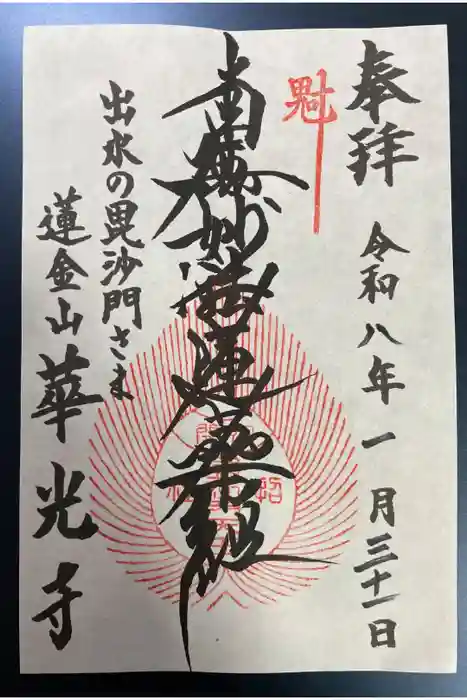 奉拝
令和八年一月三十一日
魁
南無妙法蓮華経
出水の毘沙門さま
蓮金山華光寺